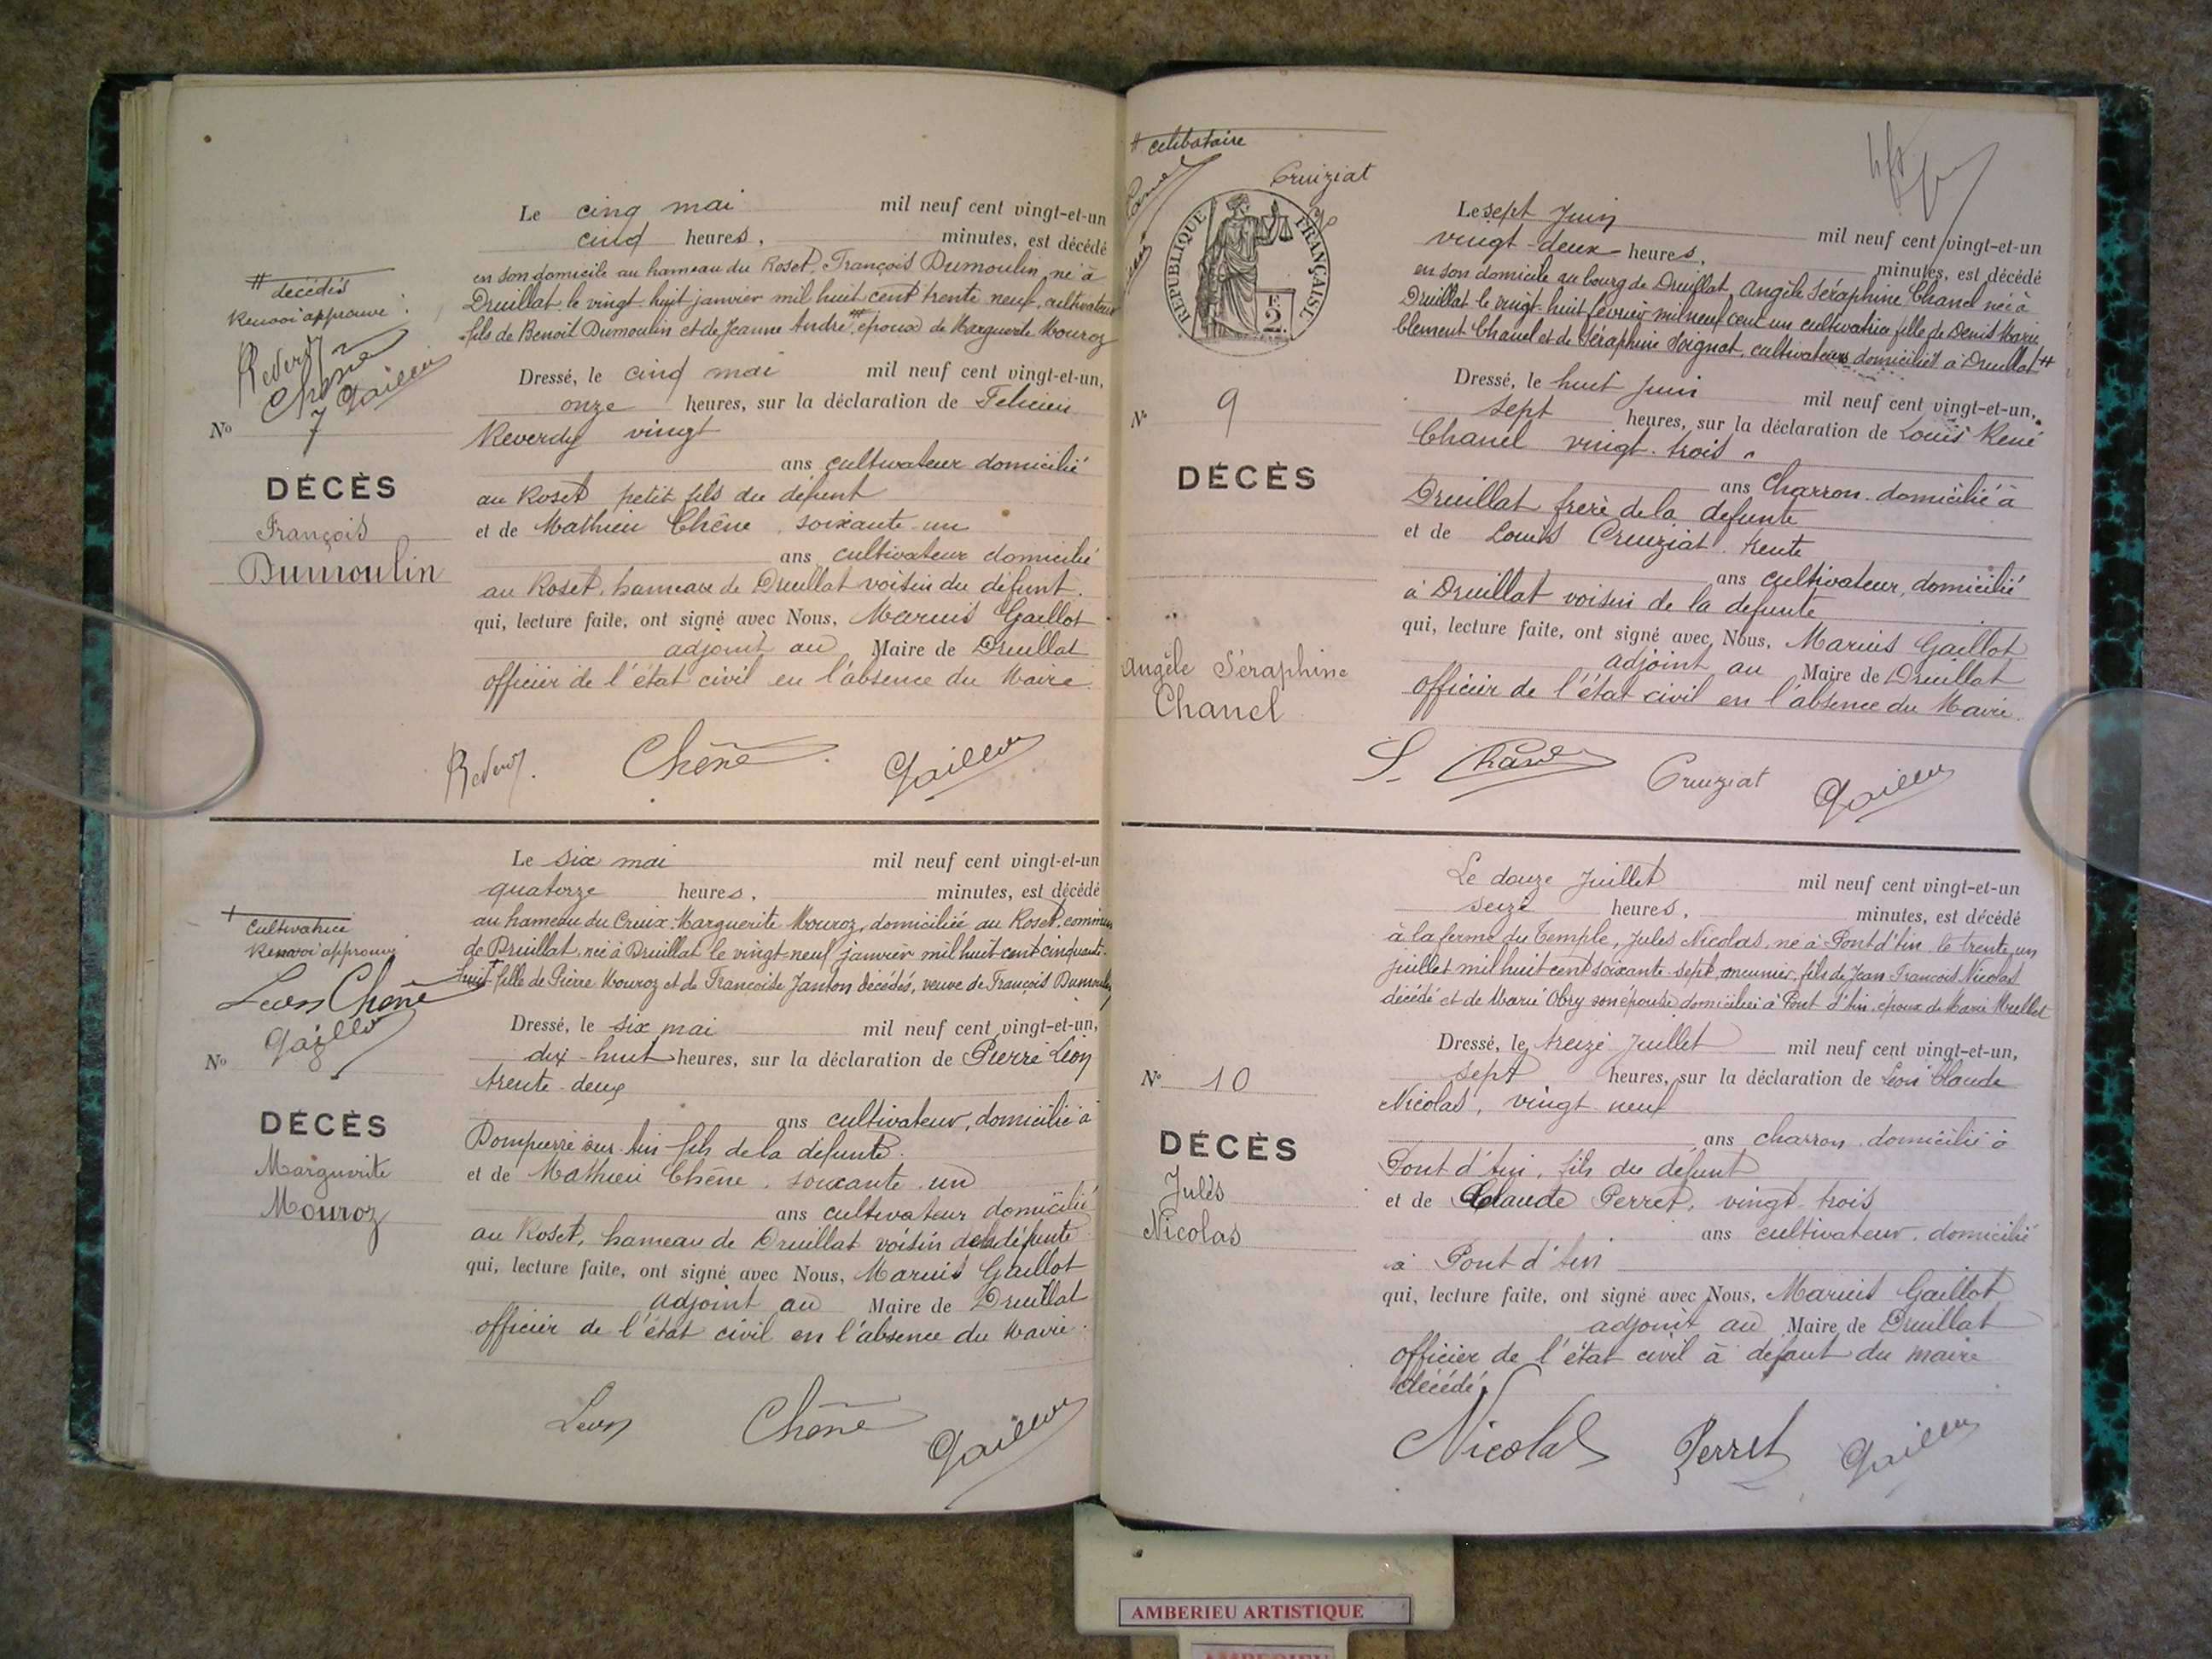 # décédés
Renvoi approuvé
Reverdy
Chêne
Gaillot
No 7
DÉCÈS
François
Dumoulin
Le cinq mai mil neuf cent vingt-et-un
cinq heures, minutes, est décédé
en son domicile au hameau du Roset, François Dumoulin, né à
Druillat le vingt huit janvier mil huit cent trente neuf, cultivateur
fils de Benoit Dumoulin et de Jeanne André # époux de Marguerite Mouroz
Dressé, le cinq mai mil neuf cent vingt-et-un,
onze heures, sur la déclaration de Felicien
Reverdy vingt
ans cultivateur domicilié
au Roset petit fils du défunt
et de Mathieu Chêne, soixante un
ans cultivateur domicilié
au Roset, hameau de Druillat voisin du défunt.
qui, lecture faite, ont signé avec Nous, Marius Gaillot
adjoint au Maire de Druillat
officier de l'état civil en l'absence du Maire.
Reverdy Chêne Gaillot
+ cultivatrice
Renvoi approuvé
Leon Chêne
Gaillot
No
DÉCÈS
Marguerite
Mouroz
Le six mai mil neuf cent vingt-et-un
quatorze heures, minutes, est décédé
au hameau du Creux, Marguerite Mouroz, domiciliée au Roset, commune
de Druillat, née à Druillat le vingt neuf janvier mil huit cent cinquante.
huit + fille de Pierre Mouroz et de Françoise Janton décédés, veuve de François Dumoulin
Dressé, le six mai mil neuf cent vingt-et-un,
dix-huit heures, sur la déclaration de Pierre Léon
trente deux
ans cultivateur, domicilié à
Dompierre sur Ain fils de la défunte.
et de Mathieu Chêne, soixante un
ans cultivateur domicilié
au Roset, hameau de Druillat voisin de la défunte
qui, lecture faite, ont signé avec Nous, Marius Gaillot
adjoint au Maire de Druillat
officier de l'état civil en l'absence du Maire.
Leon Chêne Gaillot
# célibataire
Cruiziat
RÉPUBLIQUE FRANÇAISE
2F
No 9
DÉCÈS
Angèle Séraphine
Chanel
Le sept Juin mil neuf cent vingt-et-un
vingt-deux heures, minutes, est décédé
en son domicile au bourg de Druillat, Angèle Séraphine Chanel née à
Druillat le vingt-huit février mil neuf cent un cultivatrice fille de Denis Marie
Clément Chanel et de Séraphine Soignat, cultivateurs domiciliés à Druillat #
Dressé, le huit Juin mil neuf cent vingt-et-un,
sept heures, sur la déclaration de Louis René
Chanel vingt-trois
ans charron domicilié à
Druillat frère de la défunte
et de Louis Cruiziat, trente
ans cultivateur, domicilié
à Druillat voisin de la défunte
qui, lecture faite, ont signé avec Nous, Marius Gaillot
adjoint au Maire de Druillat
officier de l'état civil en l'absence du Maire.
L. Chanel Cruiziat Gaillot
No 10
DÉCÈS
Jules
Nicolas
Le douze Juillet mil neuf cent vingt-et-un
seize heures, minutes, est décédé
à la ferme du Temple, Jules Nicolas, né à Pont d'Ain le trente un
juillet mil huit cent soixante-sept, meunier, fils de Jean-François Nicolas
décédé et de Marie Obry son épouse, domiciliée à Pont d'Ain, époux de Marie
Dressé, le treize Juillet mil neuf cent vingt-et-un,
sept heures, sur la déclaration de Léon Claude
Nicolas, vingt neuf
ans charron domicilié à
Pont d'Ain, fils du défunt
et de Claude Perret, vingt-trois
ans cultivateur, domicilié
à Pont d'Ain
qui, lecture faite, ont signé avec Nous, Marius Gaillot
adjoint au Maire de Druillat
officier de l'état civil à défaut du maire
décédé
Nicolas Perret Gaillot
AMBERIEU ARTISTIQUE
AMBERIEU